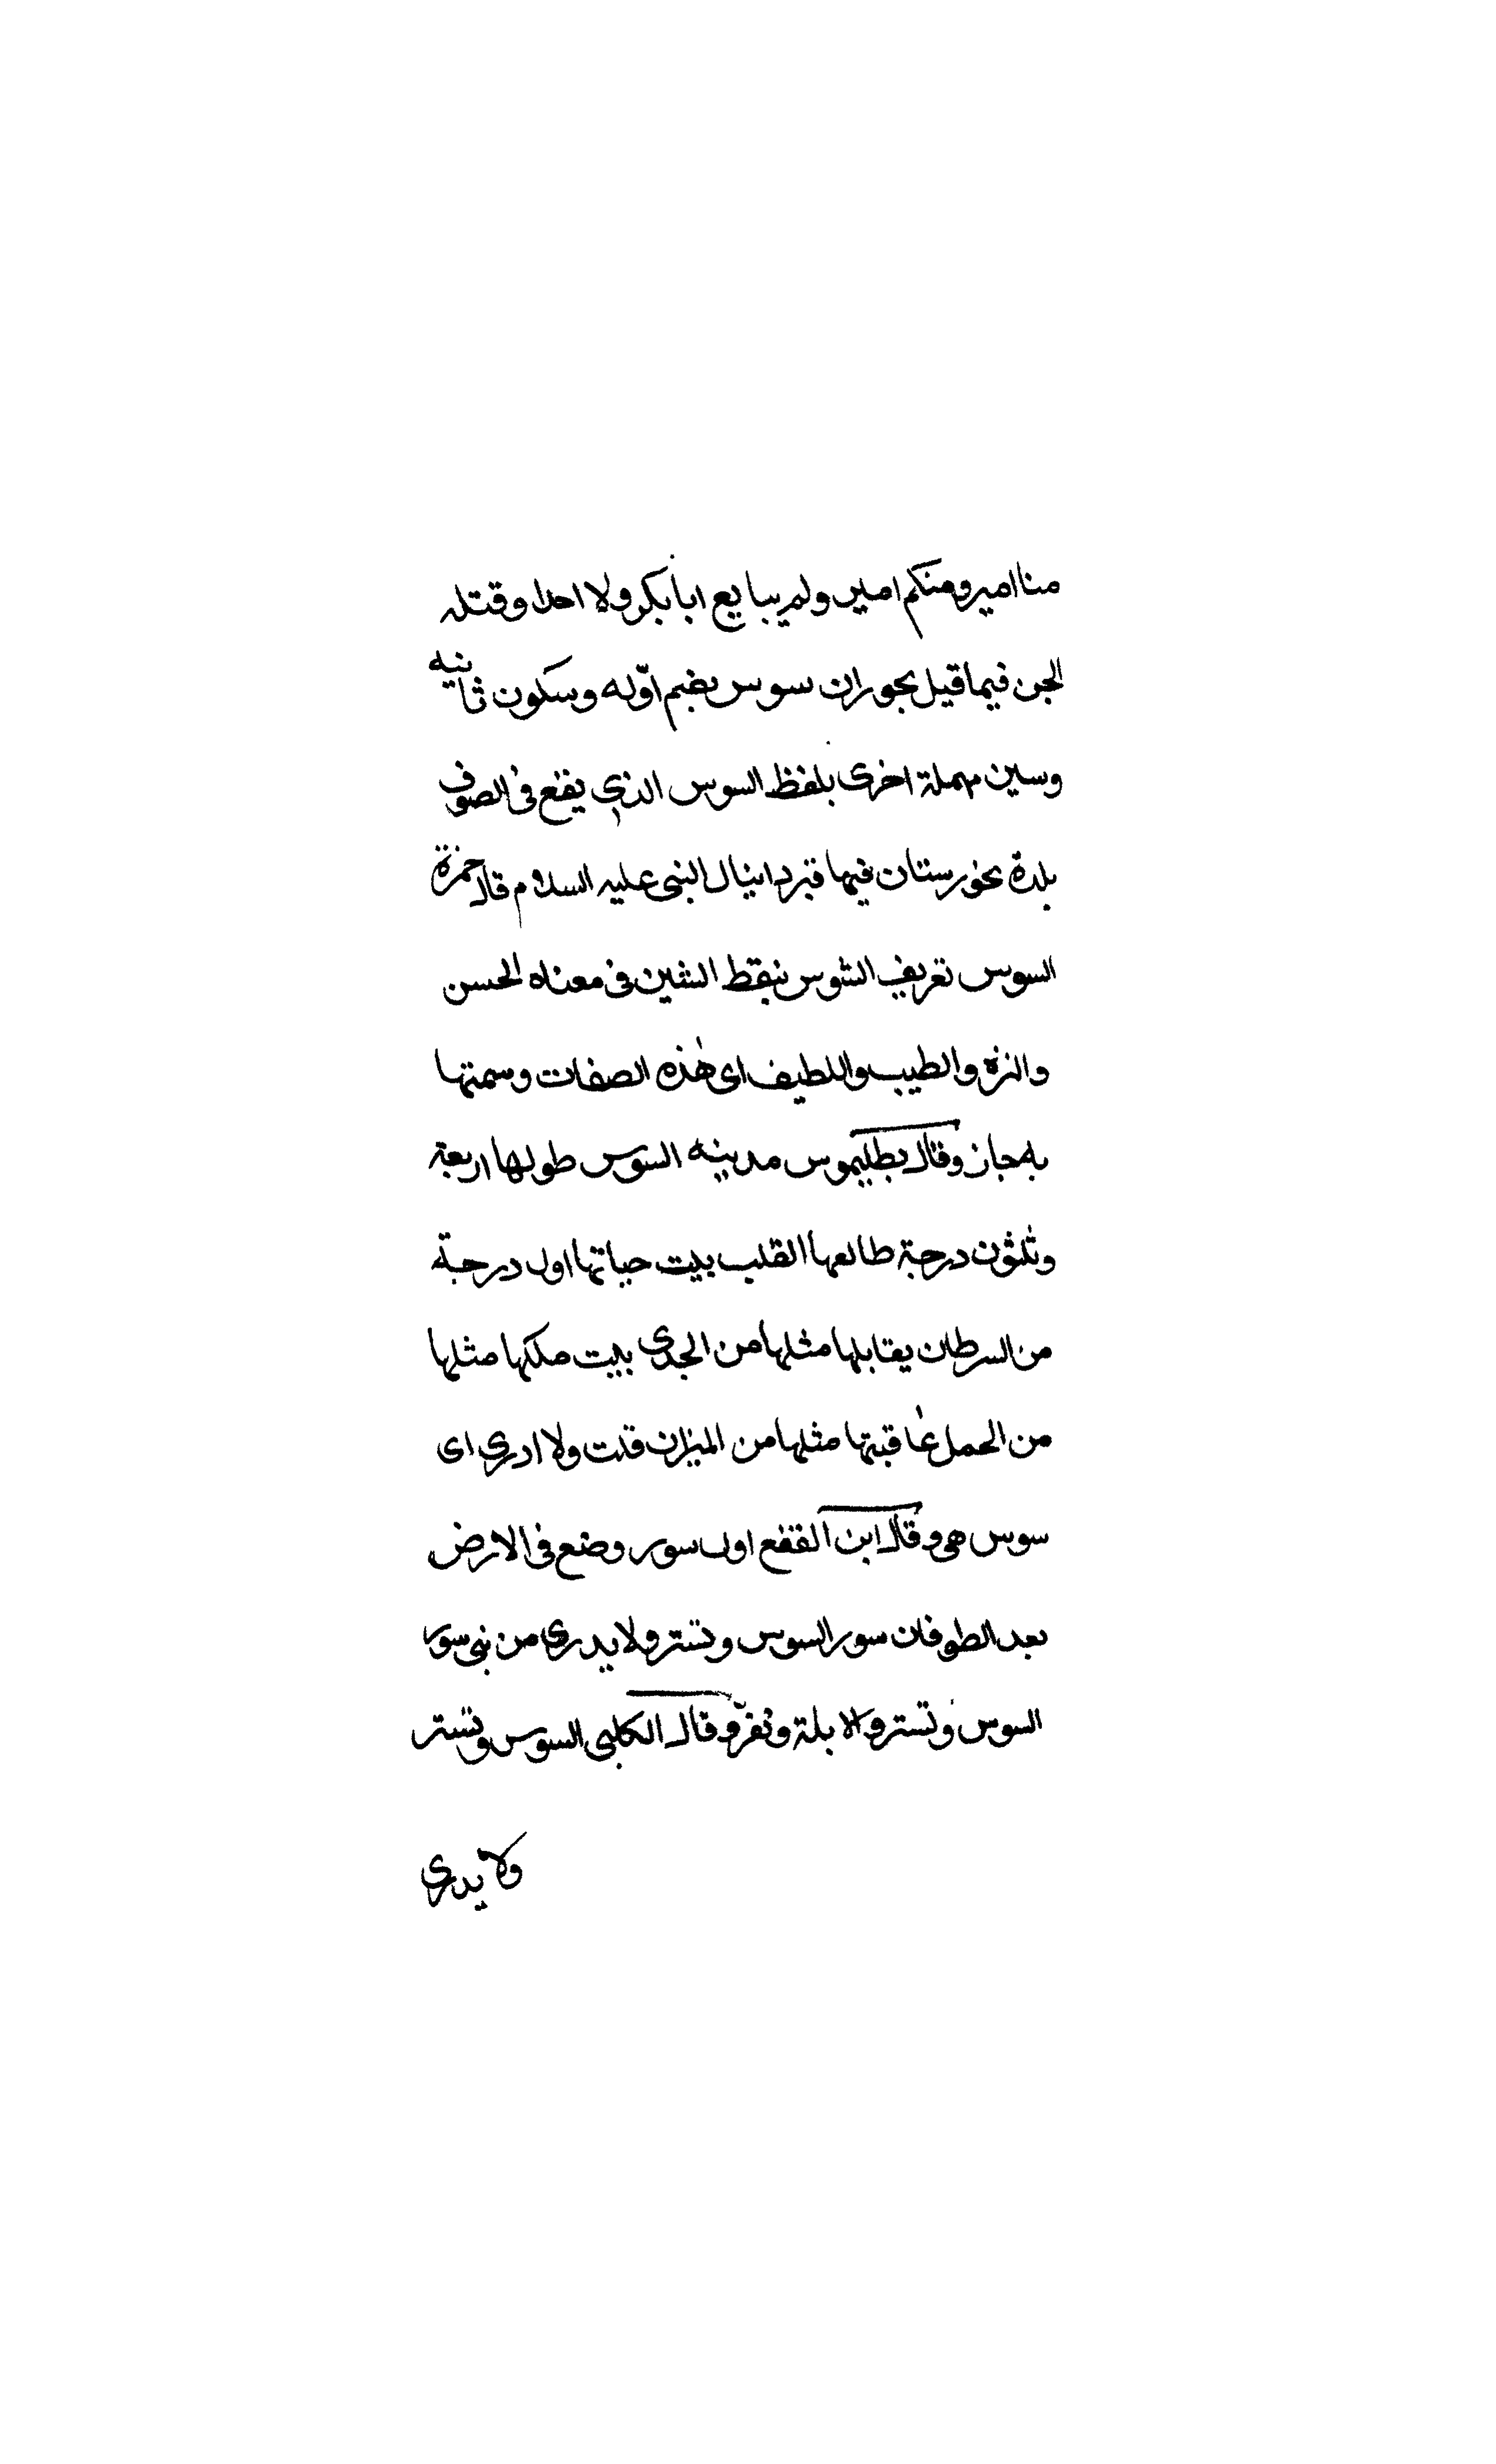 منا امير ومنكم امير ولم يبايع ابا بكر ولا احدا وقتله
الجن فيما قيل بحوران سوس بضم اوّله وسكون ثانيه
وسين مهملة اخرى بلفظ السوس الذي يقع في الصوف
بلدة بخورستان فيها قبر دانيال النبى عليه السلام قال حمزة
السوس تعريف الشوس بنقط الشين في معناه الحسن
والنزه والطيب واللطيف اى هٰذه الصفات وسمتها
به جاز وقال بطليموس مدينه السوس طولها اربعة
وثلثون درجة طالعها القلب بيت حياتها اول درجة
من السرطان يقابلها مثلها من الجدى بيت ملكها مثلها
من الحمل عاقبتها مثلها من الميزان قلت ولا ادرى اى
سوس هى وقال ابن القفع اول سور وضع في الارض
بعد الطوفان سور السوس وتستر ولا يدرى من بنى سور
السوس وتستر والابلة ونفرّ وقال الكلبى السوس وتستر
ولا يدرى